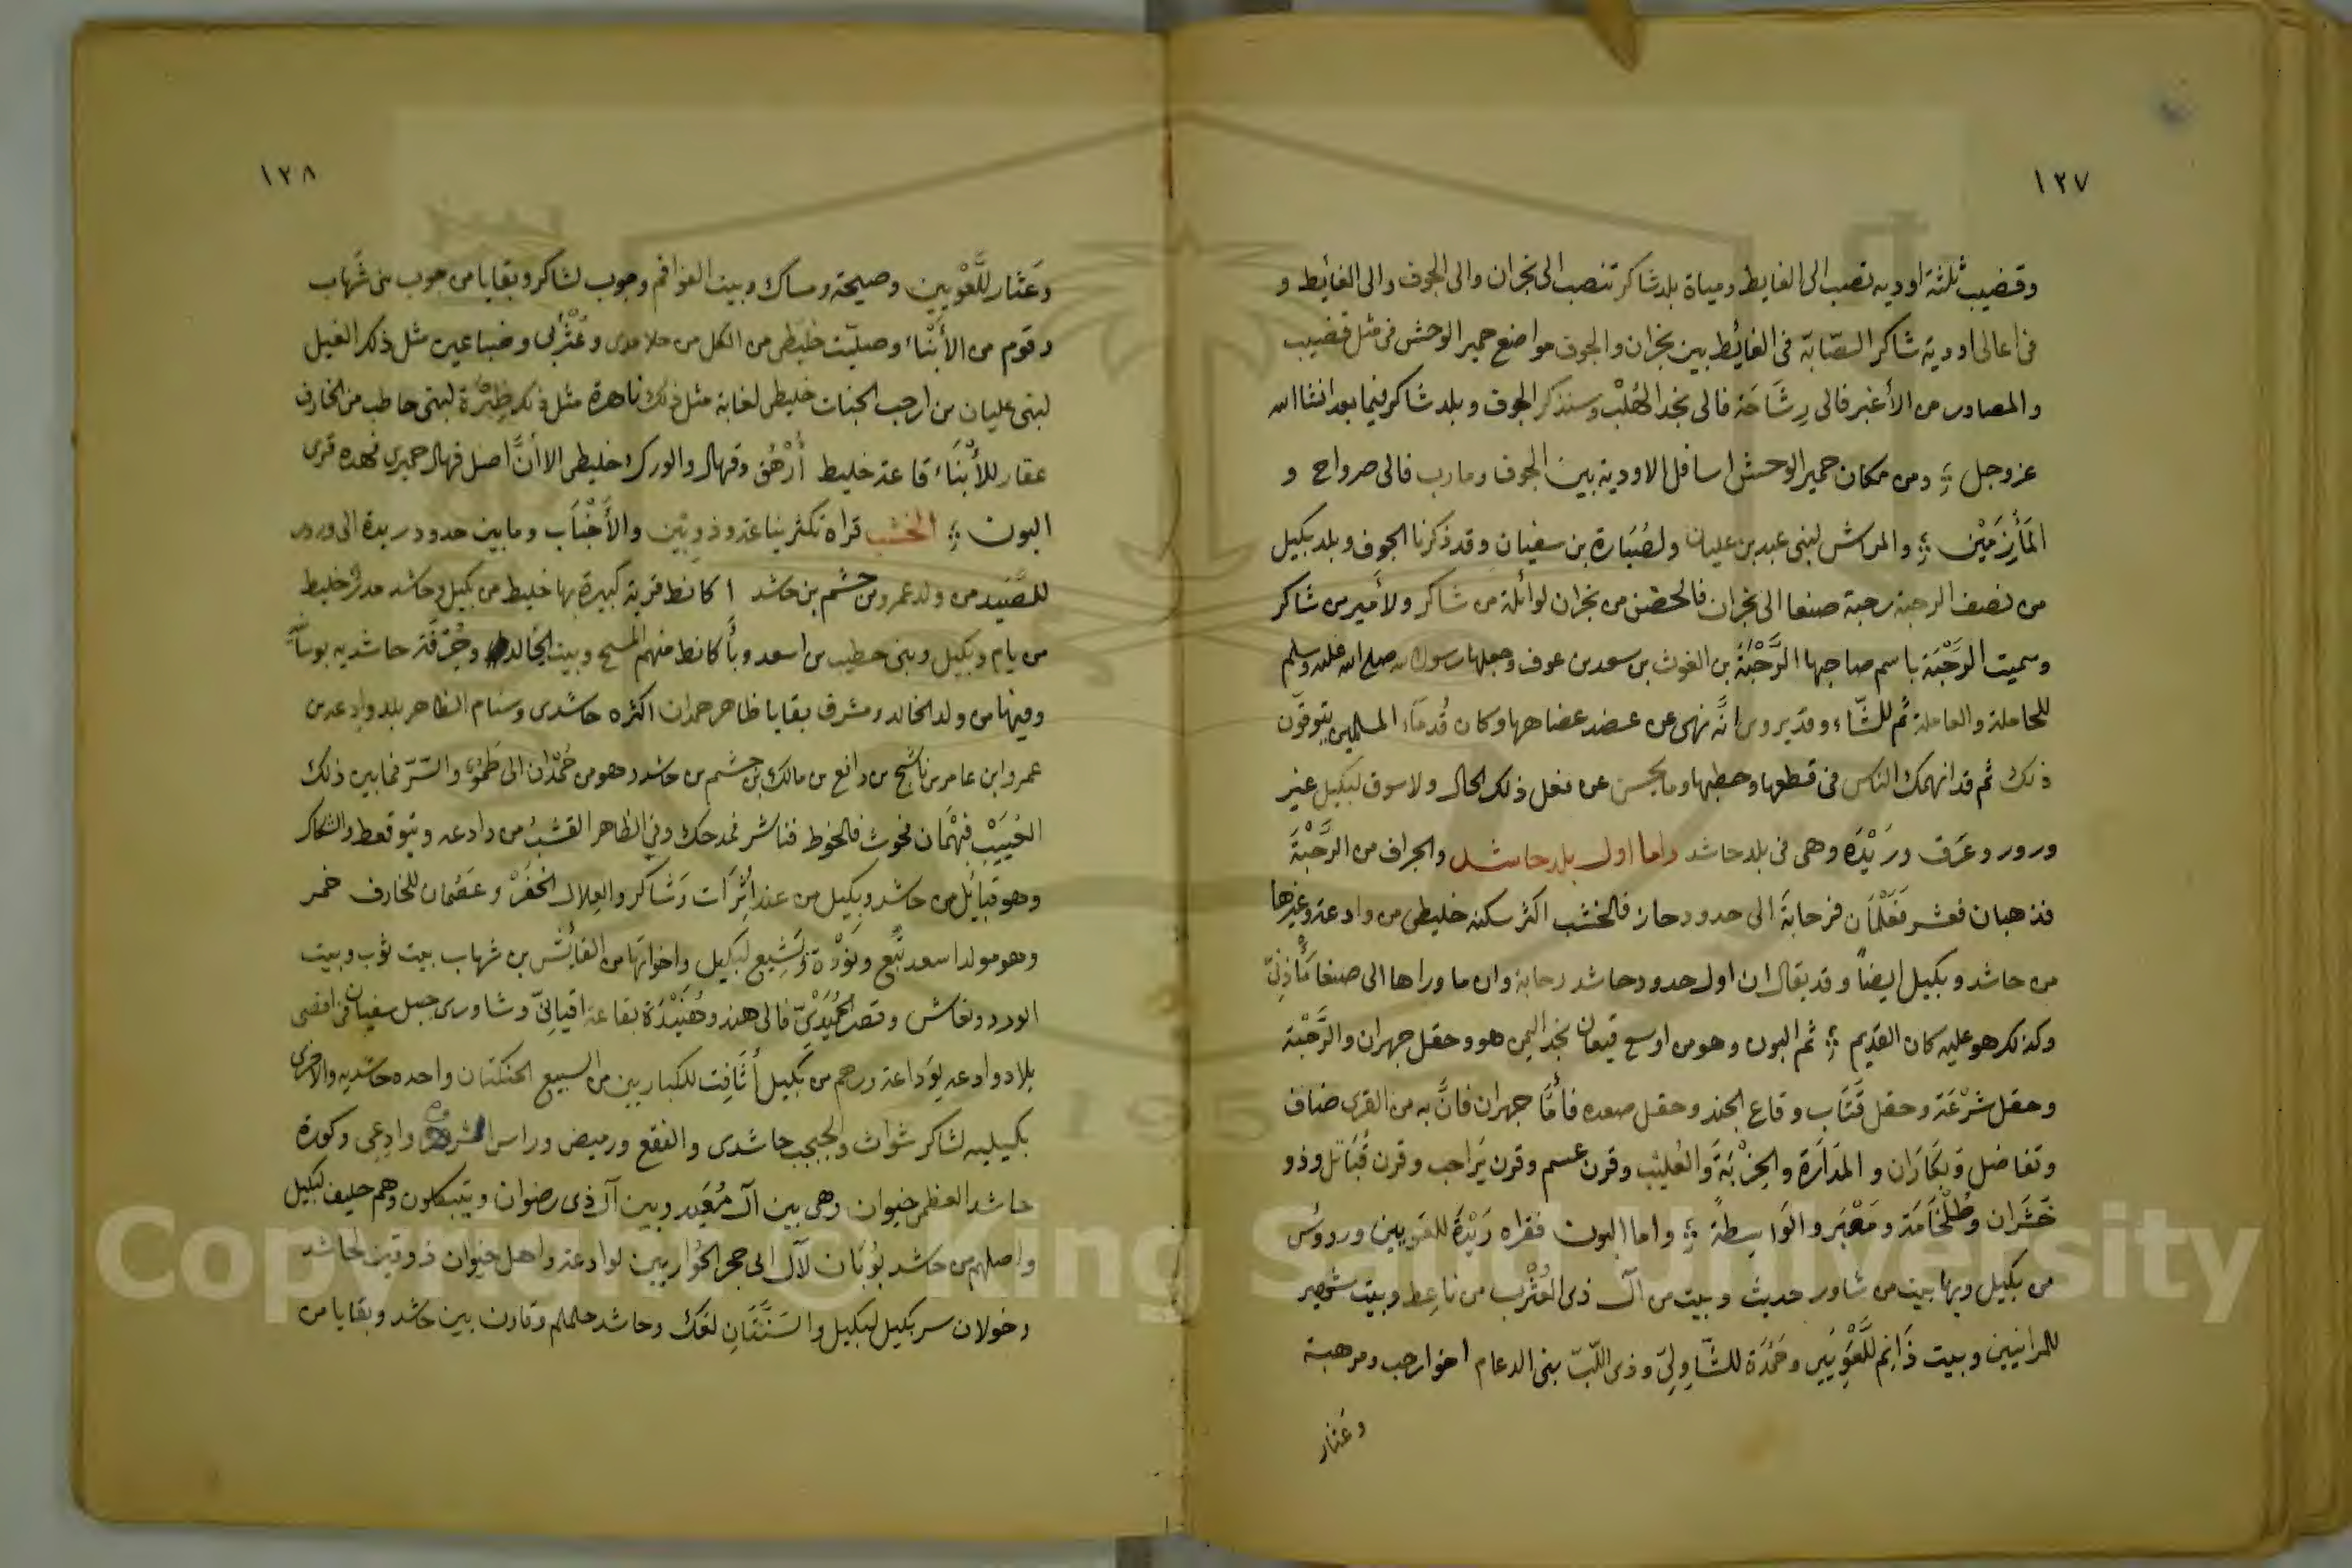 ١٣٧
وقضيب ثلثة اوديه تصب الى الغايط ومياة بلد شاكر تنصب الى نجران والى الجوف والى الغائط و
فى اعالى اودية شاكر السصّابة فى الغائط بين نجران والجوف مواضع حمير الوحش فى مثل قضيب
والمصادر من الأغبر فالى رِشَاحَة فالى نجد الهُلْب وسنذكر الجوف وبلد شاكر فيما بعد انشاالله
عزوجل ومن مكان حمير الوحش اسافل الاودية بين الجوف ومارب فالى صرواح و
المَأزِمَيْن والمراشى لبنى عبد بن عليان ولصُبَارة بن سفيان وقد ذكرنا الجوف وبلد بكيل
من نصف الرحبة رحبة صنعا الى نجران فالحضن من نجران لوائلة من شاكر ولأمير من شاكر
وسميت الرَّحْبَة باسم صاحبها الرَّحْبَةُ بن الغوث بن سعد بن عوف وجعلها رسول الله صلى الله عليه وسلم
للحاملة والعاملة ثم للشّاء وقد يروى انّه نهى عن عضد عضاهها وكان قُدمَاء المسلمين يتوقّون
ذلك ثم قد انهمك الناس فى قطعها وحطبها وما يحسن عن فعل ذلك لحال ولا سوق لبكيل غير
ورور وعَرَق ورَيْدَه وهى فى بلد حاشد واما اول بلد حاشد والجراف من الرَّحْبَةَ
فذهبان فعشر فعَلْمَان فرحابةَ الى حدود حاز فالخشب اكثر سكنه خليطى من وادعة وغيرها
من حاشد وبكيل ايضاً وقد يقال ان اول حدود حاشد رحابة وان ما وراها الى صنعا مَأْذِنّى
وكذلك هو عليه كان القديم ثم البون وهو من اوسع قيعان نجد اليمن هو وحقل جهران والرَّحْبَة
وحقل شَرْعَة وحقل قَتَاب وقاع الجند وحقل صعده فأمَّا جهران فانَّ به من القرى ضاف
وتفاضل وَبَكَارَان والمَدَارَة والحِزْبَةَ والعُليَب وقرن عسم وقرن يَرَاحب وقرن قُبَاتل وذو
خَشَران وطُلْحَامَة ومَعْبَر والوَاسِطَة واما البون فقراه رَيْدَة للعَويين وردؤس
من بكيل وبها بيت من شاور حديث وبيت من آل ذى العُثْرب من ناعِط وبيت شهير
للمرانيين وبيت ذَانِم للَّعَوِيَين وحَمْدَة للشَّاوِلِىّ وذى اللّبّ بنى الدعام اخو ارحب ومرهبة
وعَثار
١٣٨
وَعَثار للَّعْوِيين وصيحة ومساك وبيت الفواقم وجوب لشاكر وبقايا من جوب بنى شَهاب
وقوم من الأبْنَاء وصليّت خليطى من الكل من حلامدى وعُثْرُبى وضباعين مثل ذلك الغيل
لبنى عليان من ارحب الجنات خليطى لغابة مثل ذلك ناهرة مثل ذلك ظِبْرَة لبنى حاطب من الخارف
عقار للأبْنَاء قاعة خليط أَرْهُق وقهال والورك خليطى الا أنَّ اصل قهال حميرى فهده قرى
البون الخشب قراه تكثر بناعة وذوبَين والأَجْنَاب وما بين حدود ريدة الى ورور
للصَّيَد من ولد عمرو من حشم بن حاشد اكانط قرية كبيرة بها خليط من بكيل وحاشد مدر خليط
من يام وبكيل وبنى حطيب من اسعد وبأكانط منهم المسح وبيت الجالد وجُرْفَة حاشديه بوسَأن
وفيها من ولد الخالد ومشرق بقايا ظاهر همدان اكثره حاشدى وسنام الظاهر بلد وادعة من
عمرو ابن عامر بن ناشج من دافع من مالك بن جشم من حاشد وهو من حُمْدَان الى طَمُوْء والسّرّ فما بين ذلك
الحُبَيْب فبَهْمَان فحُوث فالخوط فناشر فمدحك وفى الظاهر القشبُ من وادعه وبنو قعط والشاكر
وهو قبائل من حاشد وبكيل من عند أثِرَات وَشَاكر والعِلال الخفَرْ وعَصُمان للخارف خمر
وهو مولد اسعد تُبّع ونَوْدة ويَشِيع لبكيل واخواتها من الفايش بن شهاب بيت ثوب وبيت
الورد ونغاش وقصر الحُمَيْدِىّ فالى هند وهُنَيْدَة بقاعة اقيانىّ وشاورى جبل سفيان فى اقصى
بلاد وادعه لوَداعة ورهم من بكيل أثَافِت للكباريين من السبيع الحنكتان واحده حاشديه والاخرى
بكيليه لشاكر شوات والجبجب حاشدى والفقع ورميض وراس الشروه وادعى وكورة
حاشد العظمى خيوان وهى بين آل مُعَيد وبين آل ذى رضوان ويتبكلون وهم حليف لبكيل
واصلهم من حاشد بَوُبَان لآل ابى حجر الحُواريين لوادعة واهل خيوان ذوقين لحاشد
وخولان سر بكيل لبكيل والسَنَّتَانِ لعَك وحاشد حلملم وقارن بين حاشد وبقايا من